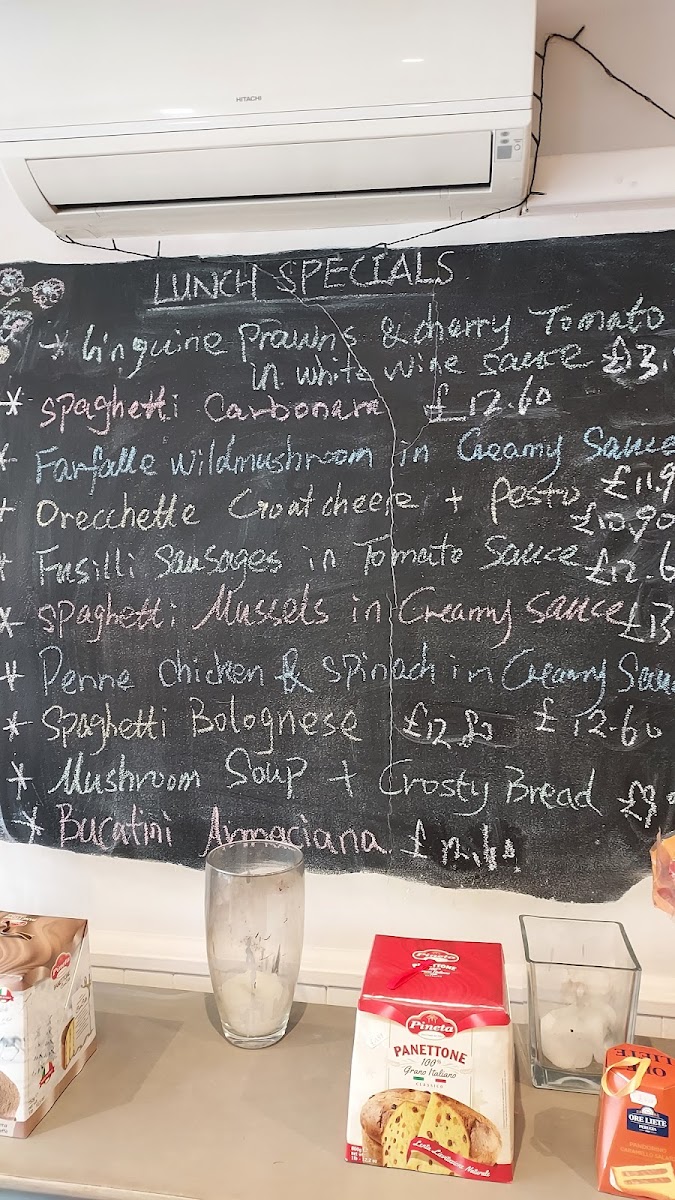 HITACHI
LUNCH SPECIALS
* Linguine Prawns & cherry Tomato
in white wine sauce £13.
* Spaghetti Carbonara £12.60
* Farfalle wildmushroom in Creamy Sauce
£11.9
+ Orecchette Goat cheese + Pesto
£10.90
* Fusilli Sausages in Tomato Sauce £12.6
* Spaghetti Mussels in Creamy Sauce £13
* Penne chicken & spinach in Creamy Sauc
* Spaghetti Bolognese £12.80 £12.60
* Mushroom Soup + Crosty Bread £9.
* Bucatini Armaciana £
Pineta
Pineta
PANETTONE
100%
Grano Italiano
CLASSICO
Lenta Lievitazione Naturale
ORE LIETE
ORE LIETE